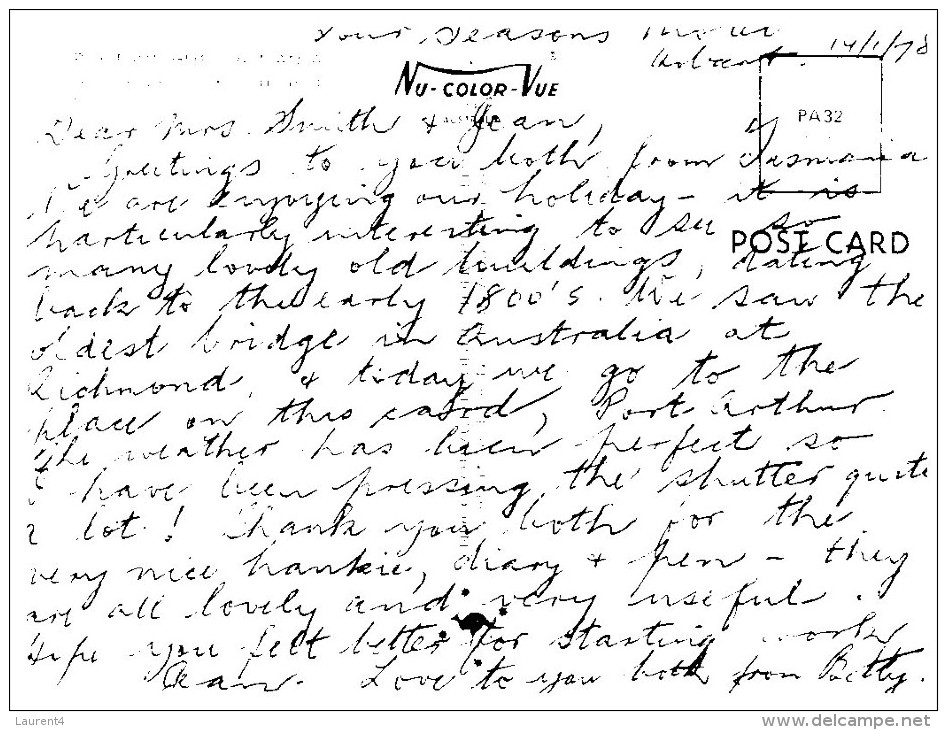 Your Seasons
Hobart. 14/1/78
NU-COLOR-VUE
PA32
POST CARD
Dear Mrs. Smith & Jean,
Greetings to you both from Tasmania
We are enjoying our holiday - it is
particularly interesting to see so
many lovely old buildings, dating
back to the early 1800's. We saw the
oldest bridge in Australia at
Richmond, & today we go to the
place on this card, Port Arthur.
The weather has been perfect so
I have been pressing the shutter quite
a lot! Thank you both for the
very nice hankie, diary & pen - they
are all lovely and very useful.
Hope you felt better for starting work
Jean. Love to you both from Betty.
Laurent4
www.delcampe.net